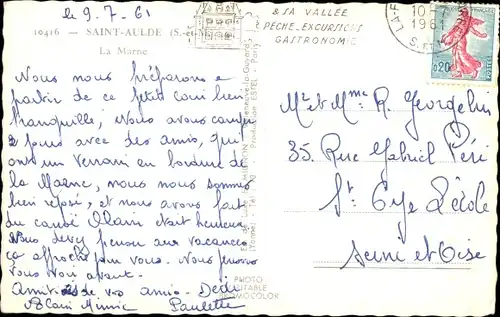 le 9.7.61
10416 - SAINT-AULDE (S.-et-
La Marne
Nous nous préparons a
partir de ce petit coin bien
tranquille, Nous avons campé
2 jours avec des amis, qui
ont un terrain en bordure de
la Marne, nous nous sommes
bien reposé, et nous avons fait
du canoë Alain était heureux
Vous devez penser aux vacances
ça approche pour vous. Nous pensons
vous voir avant.
Amitiés de vos amis. Dédé
Alain Mimie Paulette
& SA VALLÉE
PÊCHE-EXCURSIONS
GASTRONOMIE
LA-F
10
1961
S. ET M
0,20
POSTES
Mr et Mme R. Georgelin
35, Rue Gabriel Péri
St Cyr l'école
Seine et Oise
Production ESTEL - Paris
PHOTO
VÉRITABLE